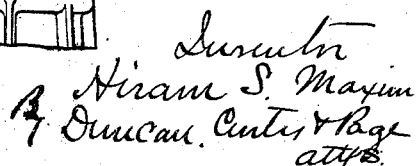 Inventor
Hiram S. Maxim
By Duncan, Curtis & Page
attys.